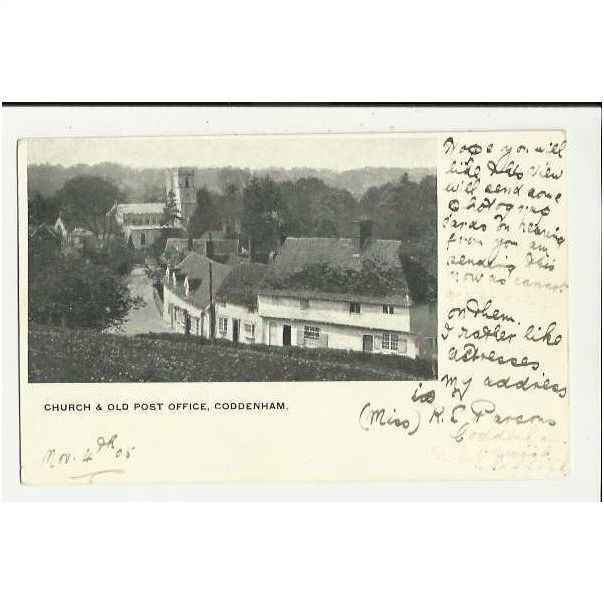 CHURCH & OLD POST OFFICE, CODDENHAM.
Nov. 4th 05
Hope you will
like this view
will send some
photograph
cards on hearing
from you am
sending this
now as cannot
on them
I rather like
actresses
my address
is
(Miss) K. E Parsons
Coddenham